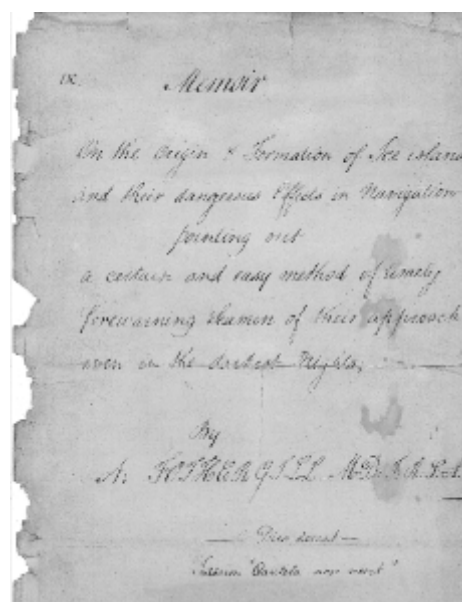 Memoir
On the Origin & Formation of Ice islands
and their dangerous Effects in Navigation
pointing out
a certain and easy method of timely
forewarning Seamen of their approach
even in the darkest Nights,
By
A: FOTHERGILL M.D. F.R.S.